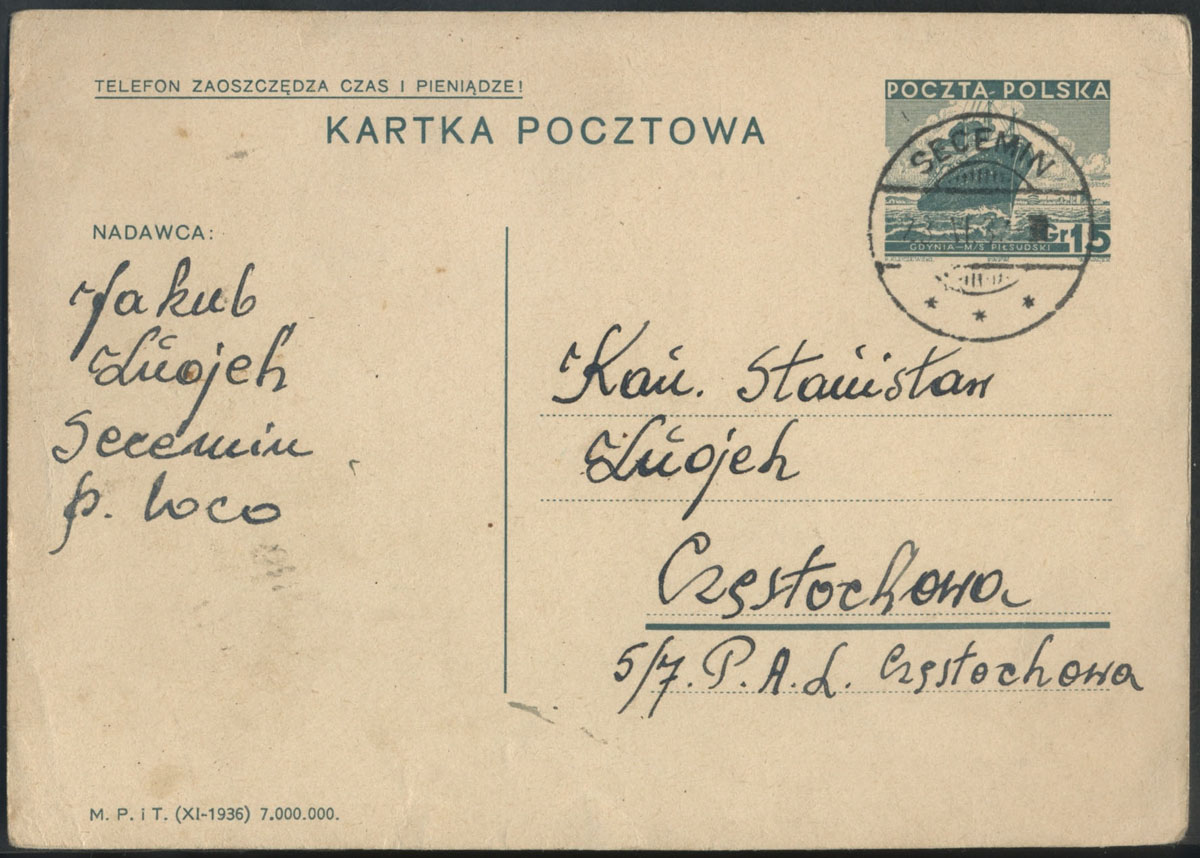 TELEFON ZAOSZCZĘDZA CZAS I PIENIĄDZE!
KARTKA POCZTOWA
POCZTA POLSKA
SECEMIN
Gr 15
GDYNIA—M/S PIŁSUDSKI
NADAWCA:
Jakub
Secemin
p. loco
Kań. Stanisław
Częstochowa
5/7. P. A. L. Częstochowa
M. P. i T. (XI-1936) 7.000.000.